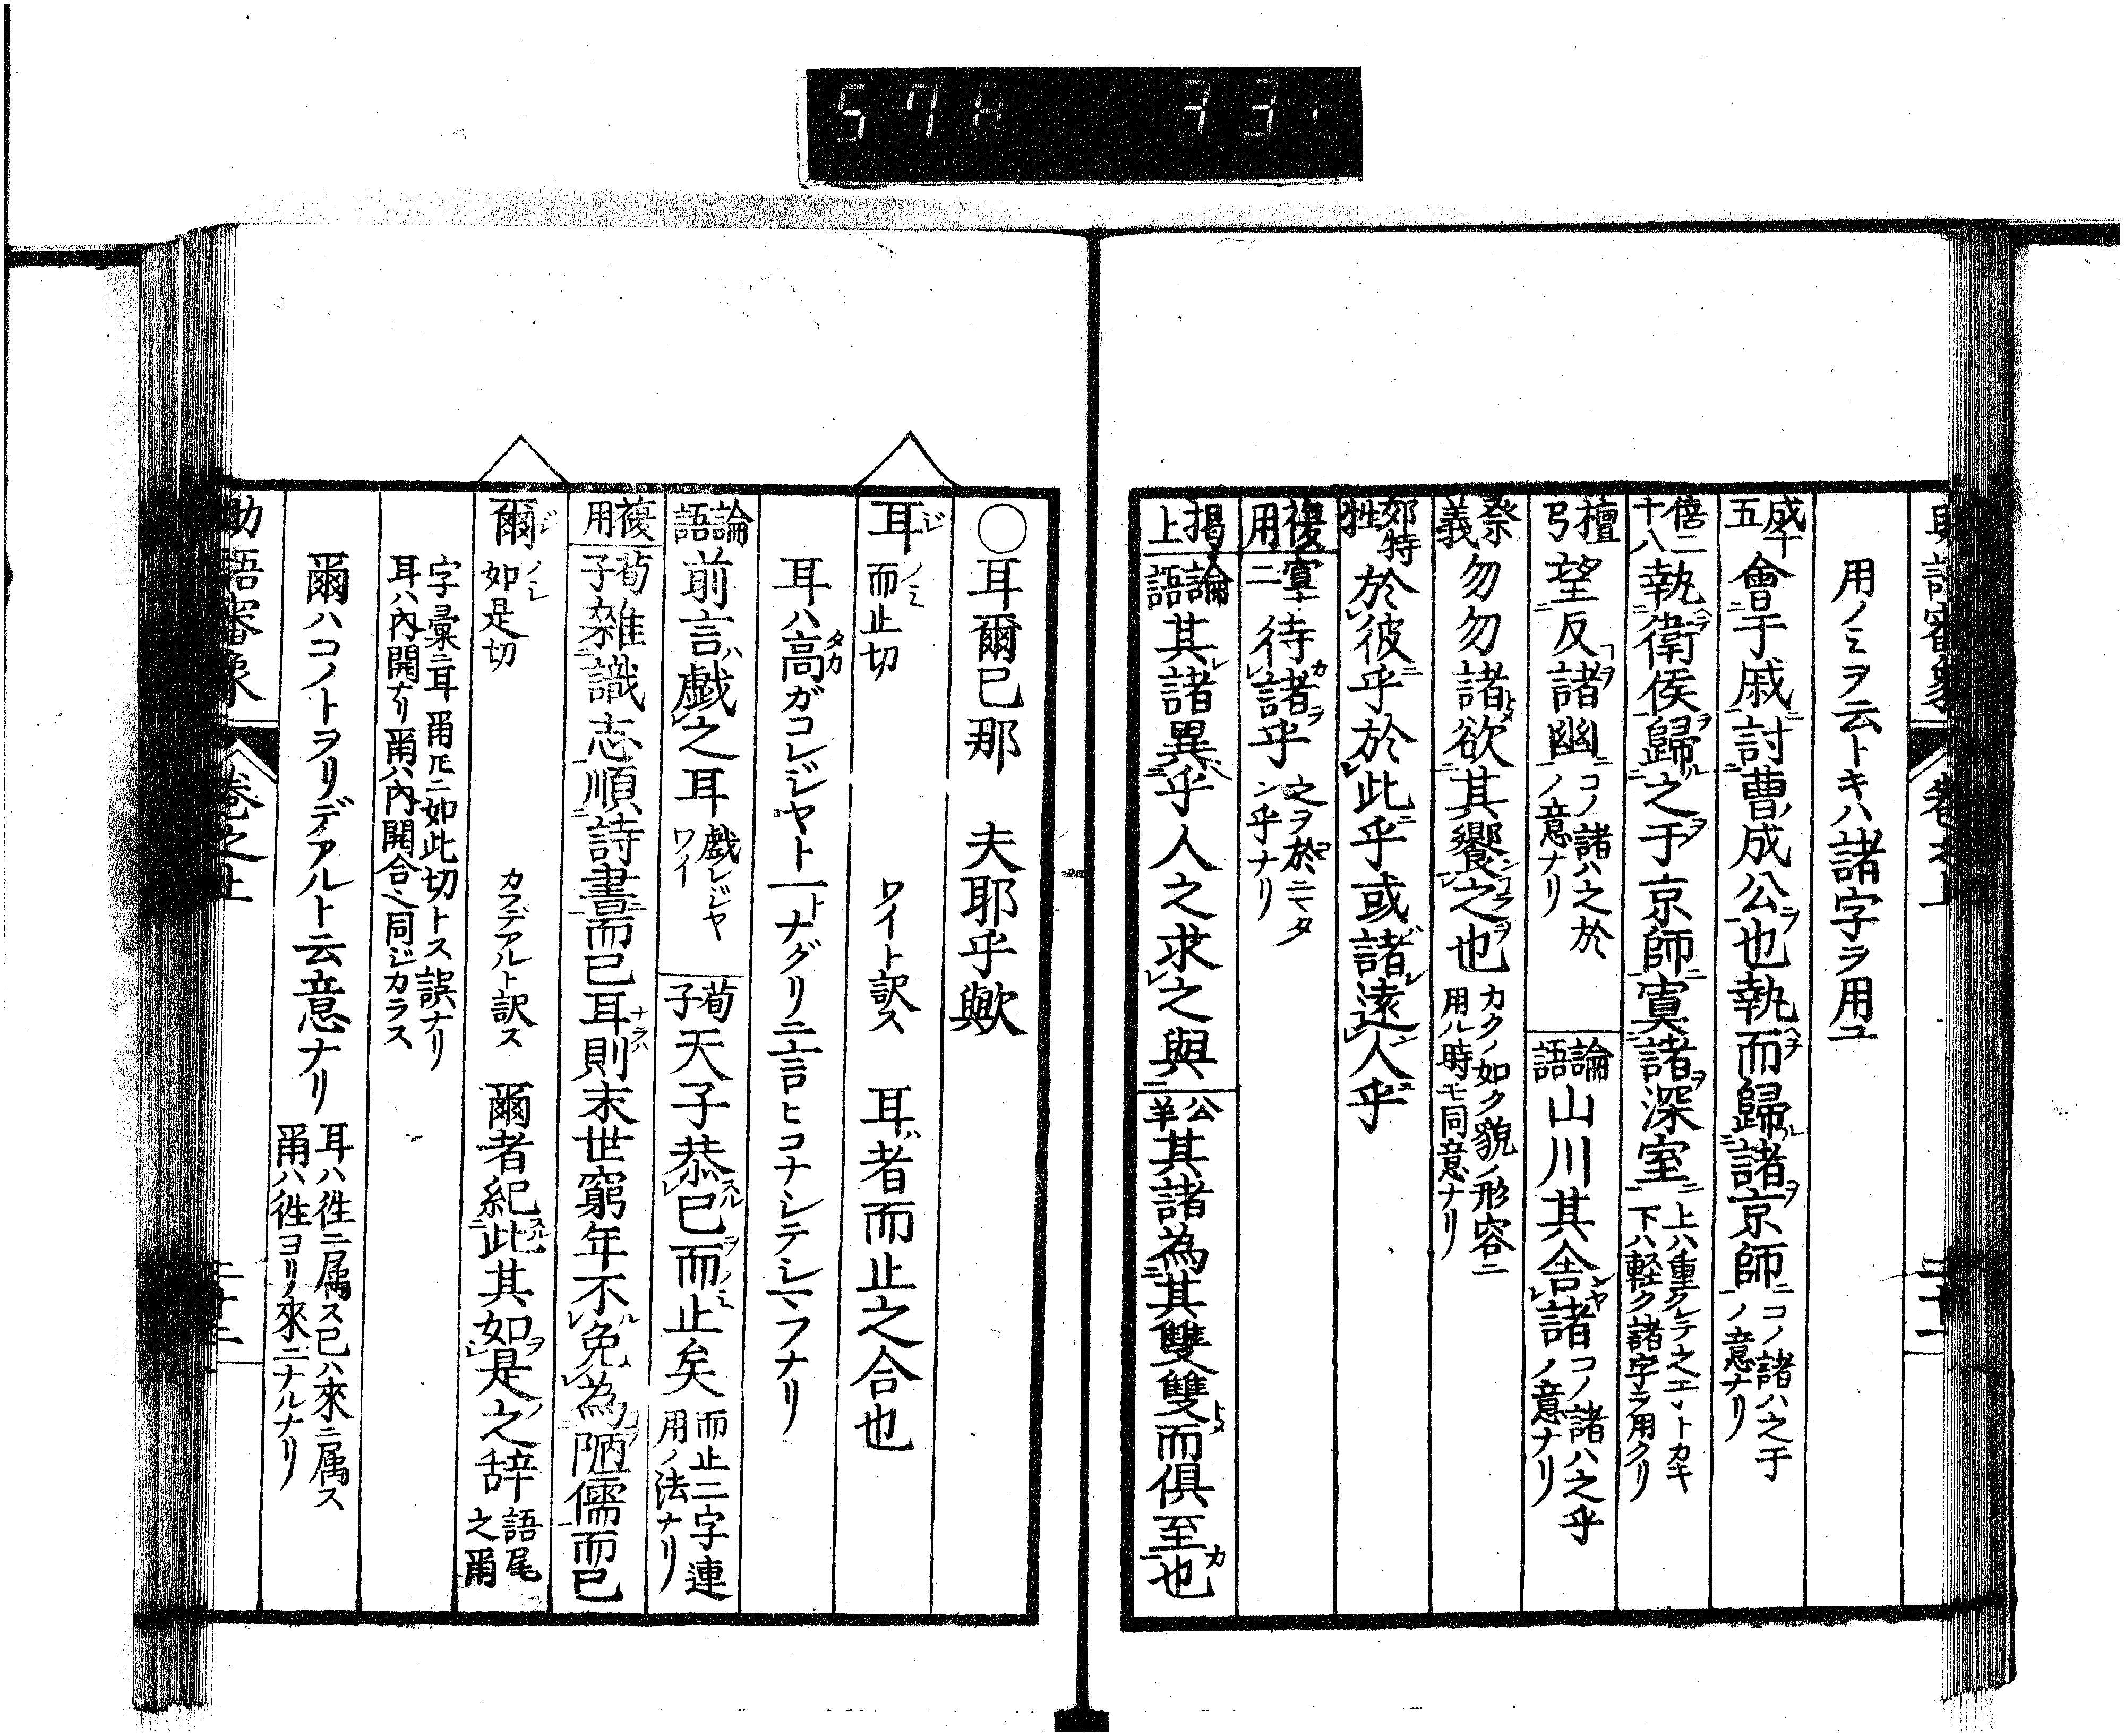 助語審象 卷之上
用ノミヲ云トキハ諸字ヲ用ユ
成十五 會于戚討曹成公也執而歸諸京師 コノ諸ハ之于ノ意ナリ
僖二十八 執衛侯歸之于京師寘諸深室 上ハ重クシテ之エヽトカキ下ハ軽ク諸字ヲ用クリ
檀弓 望反諸幽 コノ諸ハ之於ノ意ナリ 論語 山川其舍諸 コノ諸ハ之乎ノ意ナリ
祭義 勿勿諸欲其饗之也 カクノ如ク貌ノ形容ニ用ル時モ同意ナリ
郊特牲 於彼乎於此乎或諸遠人乎
複用 寡二 待諸乎 之ヲ於ニマタン乎ナリ
揭上 論語 其諸異乎人之求之與 公羊 其諸為其雙雙而俱至也
○耳爾已那 夫耶乎歟
耳 而止切 ワイト訳ス 耳者而止之合也
耳ハ高ガコレジヤト一ナグリニ言ヒコナシテシマフナリ
論語 前言戯之耳 戯レジヤワイ 荀子 天子恭已而止矣 而止二字連用ノ法ナリ
複用 荀子 雜識志順詩書而已耳則末世窮年不免為陋儒而已
爾 如是切 カフデアルト訳ス 爾者紀此其如是之辞 語尾之爾
字彙ニ耳爾𪜈ニ如此切トス誤ナリ耳ハ內開ナリ爾ハ內開合ヘ同ジカラス
爾ハコノトヲリデアルト云意ナリ 耳ハ徃ニ属ス已ハ來ニ属ス爾ハ徃ヨリ來ニナルナリ
助語審象 卷之上 二十二